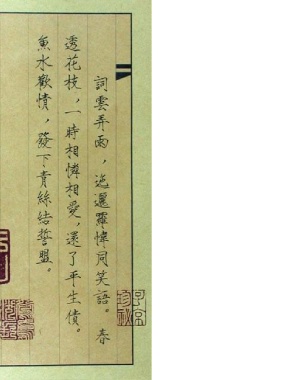 詞雲弄雨，迤邐羅幃同笑語。春
透花枝，一時相憐相愛，還了平生債。
魚水歡情，發下青絲結誓盟。